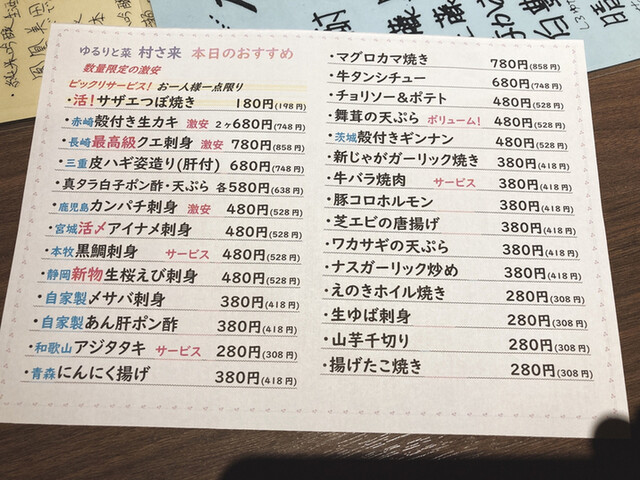 ゆるりと菜 村さ来 本日のおすすめ
数量限定の激安
ビックリサービス! お一人様一点限り
・活!サザエつぼ焼き 180円(198円)
・赤崎 殻付き生カキ 激安 2ヶ680円(748円)
・長崎 最高級クエ刺身 激安 780円(858円)
・三重 皮ハギ姿造り(肝付) 680円(748円)
・真タラ白子ポン酢・天ぷら 各580円(638円)
・鹿児島 カンパチ刺身 激安 480円(528円)
・宮城 活〆アイナメ刺身 480円(528円)
・本牧 黒鯛刺身 サービス 480円(528円)
・静岡 新物生桜えび刺身 480円(528円)
・自家製 メサバ刺身 380円(418円)
・自家製 あん肝ポン酢 380円(418円)
・和歌山 アジタタキ サービス 280円(308円)
・青森 にんにく揚げ 380円(418円)
・マグロカマ焼き 780円(858円)
・牛タンシチュー 680円(748円)
・チョリソー&ポテト 480円(528円)
・舞茸の天ぷら ボリューム! 480円(528円)
・茨城 殻付きギンナン 480円(528円)
・新じゃがガーリック焼き 380円(418円)
・牛バラ焼肉 サービス 380円(418円)
・豚コロホルモン 380円(418円)
・芝エビの唐揚げ 380円(418円)
・ワカサギの天ぷら 380円(418円)
・ナスガーリック炒め 380円(418円)
・えのきホイル焼き 280円(308円)
・生ゆば刺身 280円(308円)
・山芋千切り 280円(308円)
・揚げたこ焼き 280円(308円)